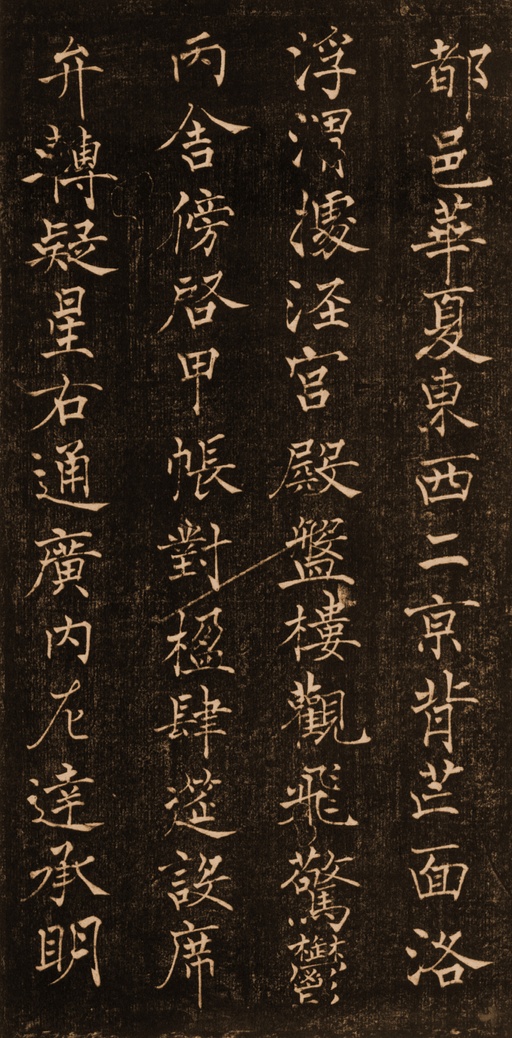 都邑華夏東西二京背芒面洛
浮渭據涇宮殿盤樓觀飛驚鬱
丙舍傍啓甲帳對楹肆筵設席
弁轉疑星右通廣內左達承明